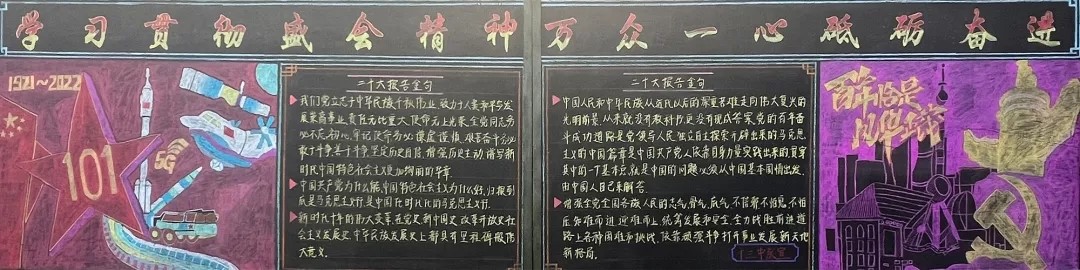 学习贯彻盛会精神 万众一心砥砺奋进
1921~2022
101
5G
二十大报告金句
我们党立志于中华民族千秋伟业,致力于人类和平与发
展崇高事业,责任无比重大,使命无上光荣。全党同志务
必不忘初心、牢记使命,务必谦虚谨慎、艰苦奋斗,务必
敢于斗争、善于斗争,坚定历史自信,增强历史主动,谱写新
时代中国特色社会主义更加绚丽的华章。
中国共产党为什么能,中国特色社会主义为什么好,归根到
底是马克思主义行,是中国化时代化的马克思主义行。
新时代十年的伟大变革,在党史、新中国史、改革开放史、社
会主义发展史、中华民族发展史上都具有里程碑的伟
大意义。
二十大报告金句
中国人民和中华民族从近代以后的深重苦难走向伟大复兴的
光明前景,从来就没有教科书,更没有现成答案。党的百年奋
斗成功道路是党领导人民独立自主探索开辟出来的,马克思
主义的中国篇章是中国共产党人依靠自身力量实践出来的,贯穿
其中的一个基本点就是中国的问题必须从中国基本国情出发,
由中国人自己来解答。
增强全党全国各族人民的志气、骨气、底气,不信邪、不怕鬼、不怕
压,知难而进、迎难而上,统筹发展和安全,全力战胜前进道
路上各种困难和挑战,依靠顽强斗争打开事业发展新天地
新格局。
百年恰是
风华正茂